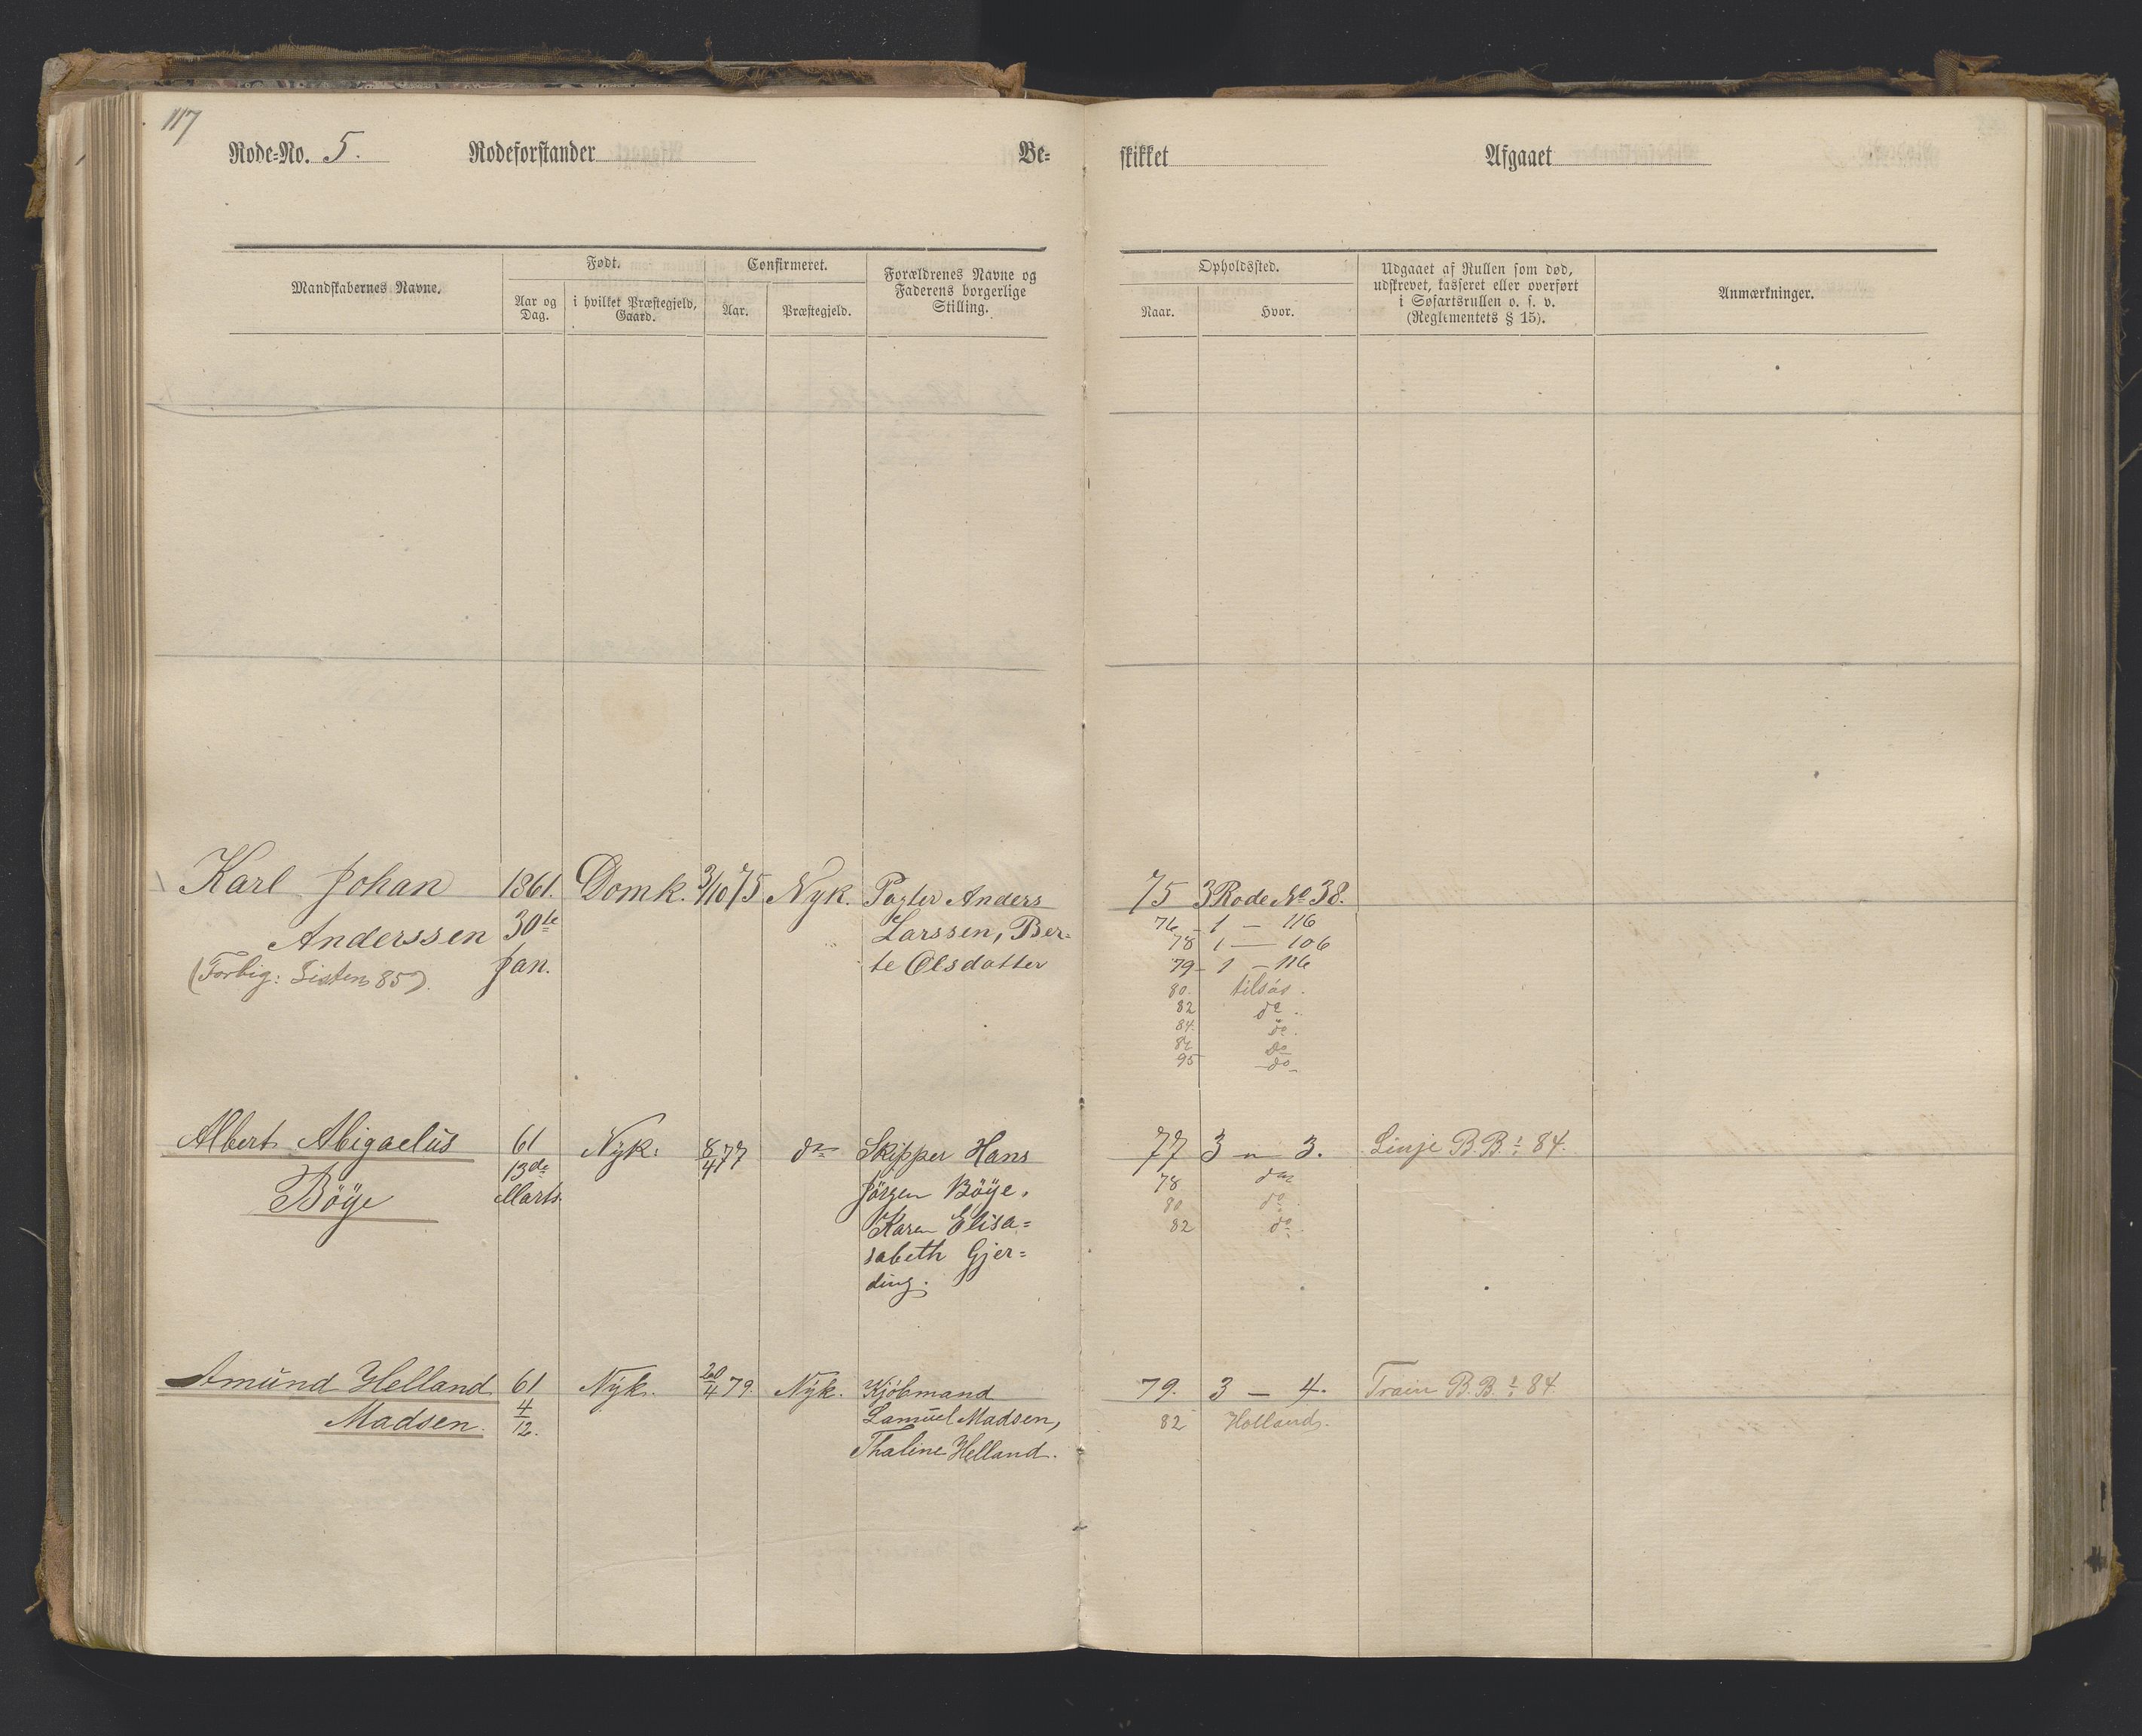 117
Rode-No. 5. Rodeforstander Be-
skikket Afgaaet
Mandskabernes Navne.
Født.
Aar og
Dag.
i hvilket Præstegjeld,
Gaard.
Confirmeret.
Aar.
Præstegjeld.
Forældrenes Navne og
Faderens borgerlige
Stilling.
Opholdssted.
Naar.
Hvor.
Udgaaet af Rullen som død,
udskrevet, kasseret eller overført
i Søfartsrullen o. s. v.
(Reglementets § 15).
Anmærkninger.
Karl Johan 1861. Domk. 3/10 75. Nyk. Anders 75 3 Rode No 38.
Anderssen 30te Larssen, Ber= 76 - 1 — 116
Jan. te Olsdatter 78 1 — 106
(Forbig: Listen 85). 79 - 1 — 116
80. tilsös.
82 do.
84. do.
do
95 do
Albert Abigaelus 61 Nyk. 8/4 77 do Skipper Hans 77 3 " 3. Linje B. B. : 84.
Böye 13de Jörgen Böye, 78 do
Marts. Karen Elisa= 80 do.
sabeth Gjer= 82 do.
ding.
Amund Helland 61 Nyk. 20/4 79. Nyk. Kjöbmand 79. 3 — 4. Train B. B. : 84
Madsen. 4/12. Samuel Madsen, 82 Holland.
Thaline Helland.